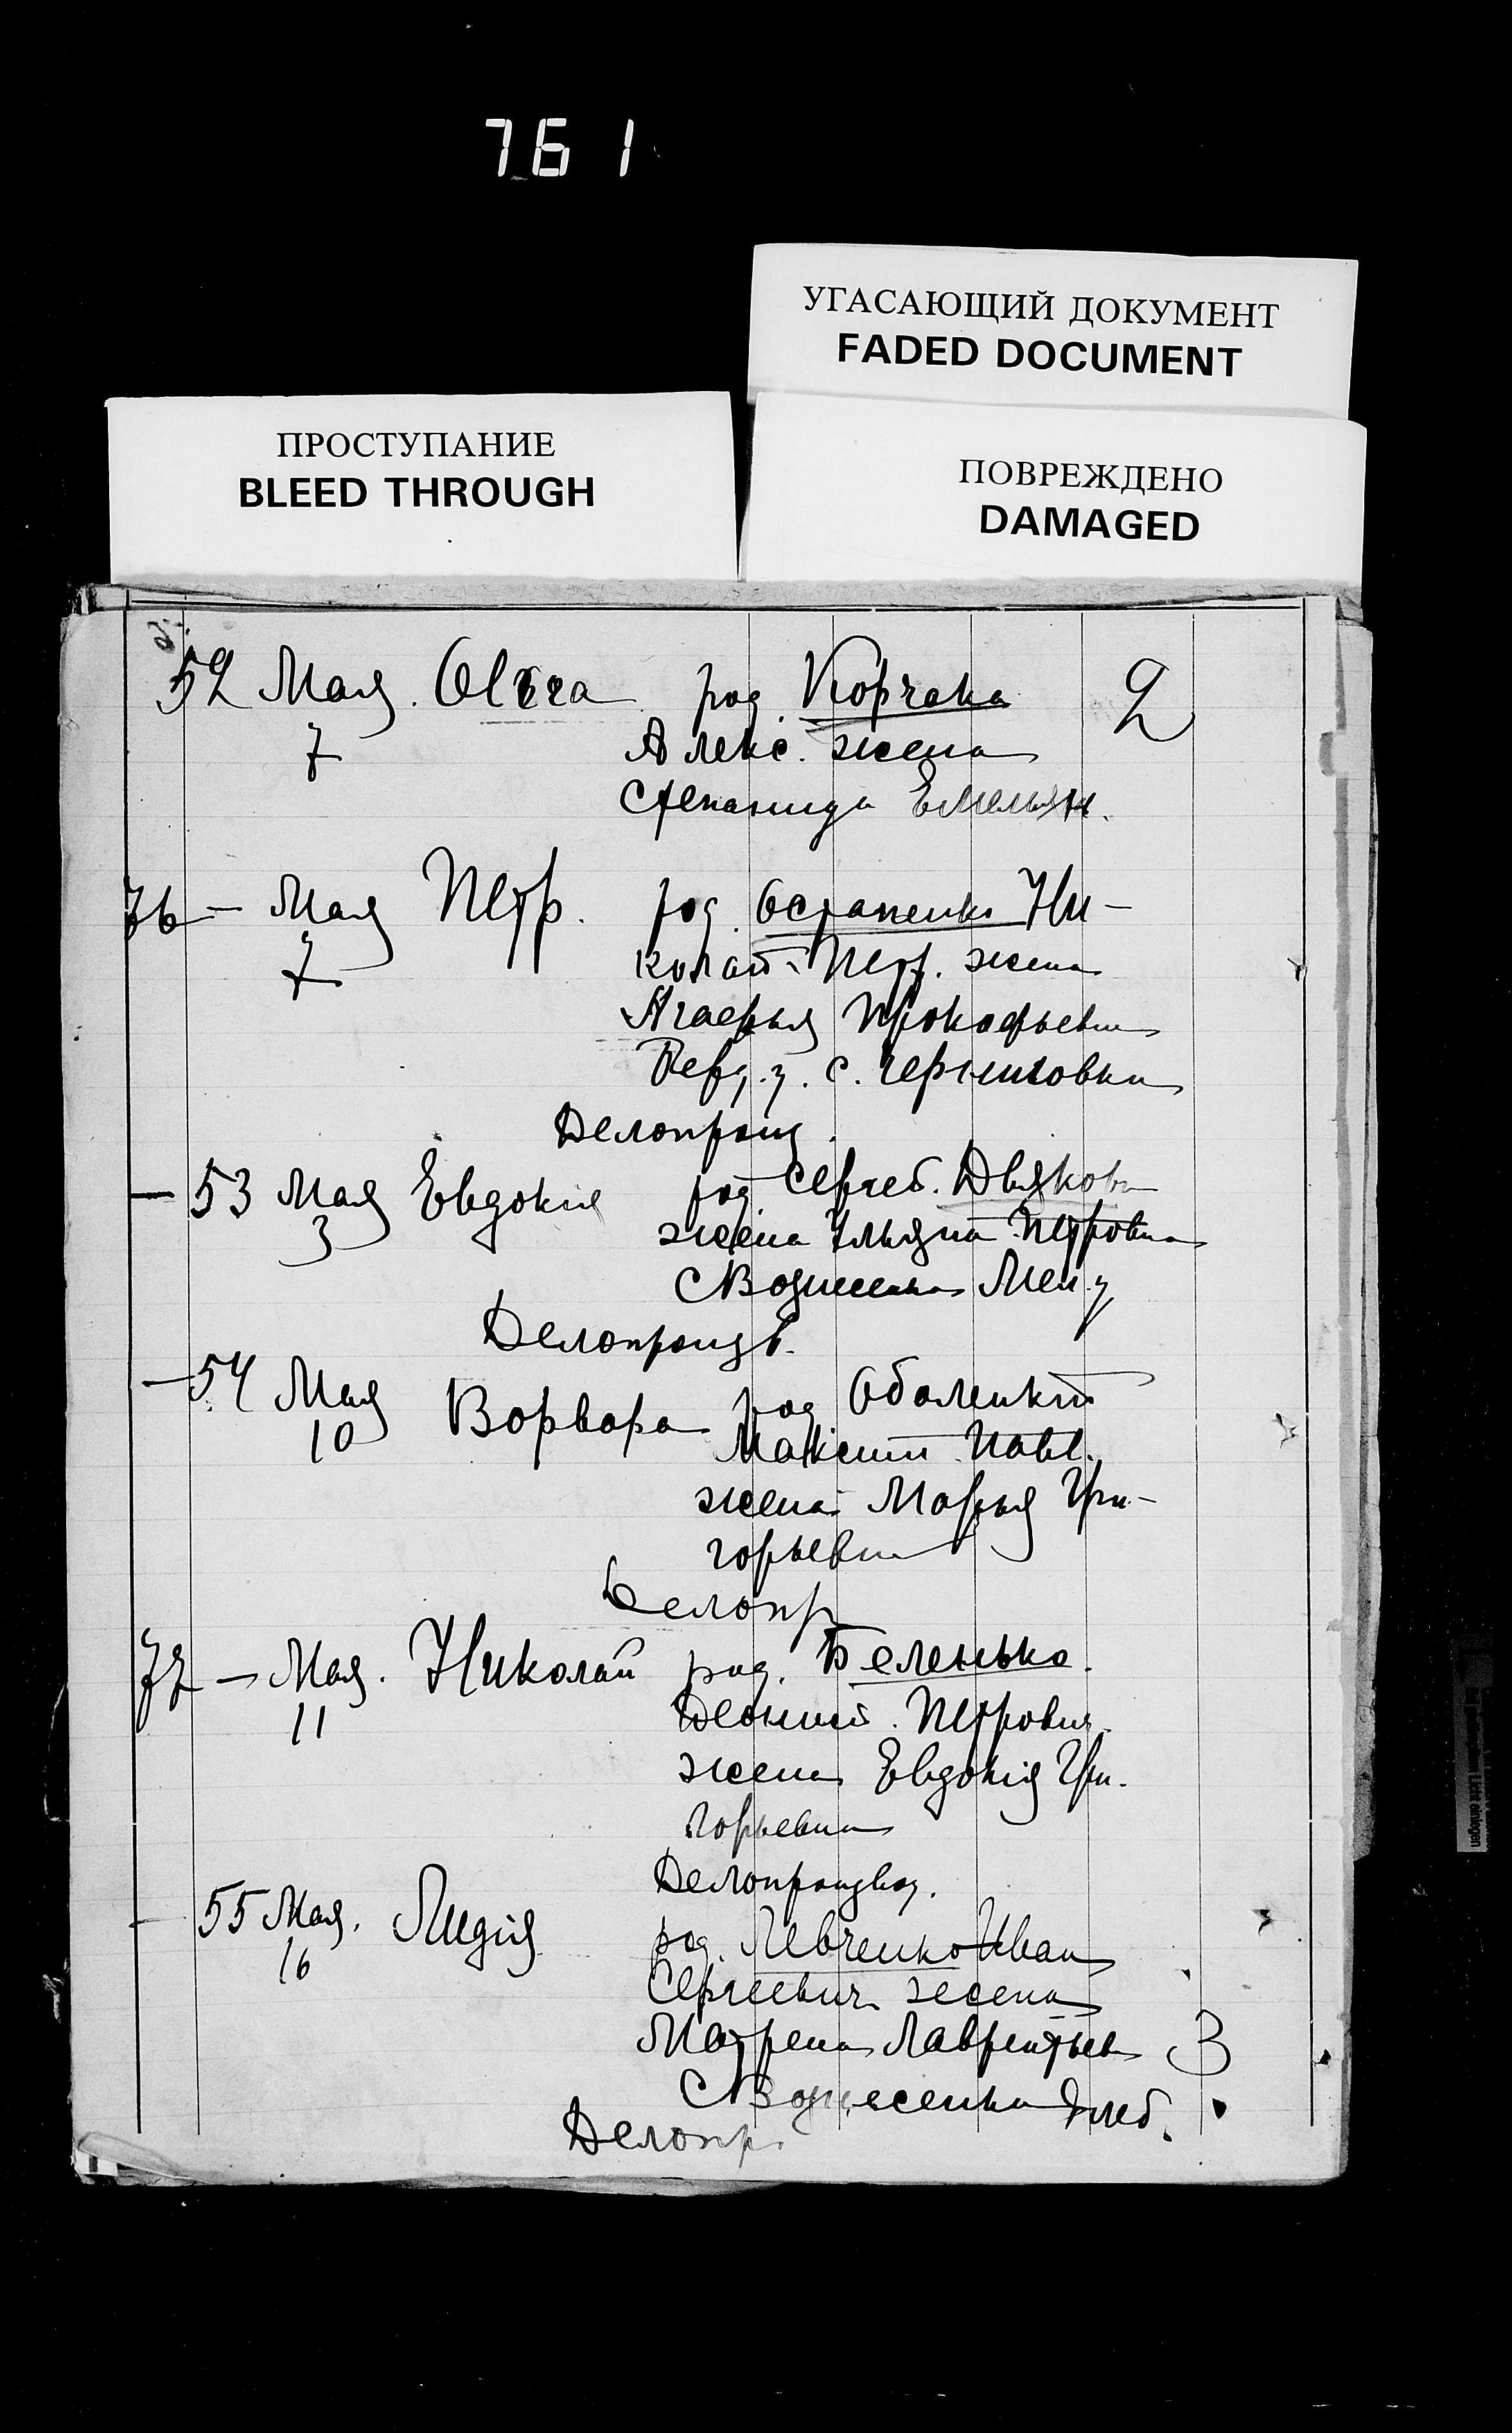 761
УГАСАЮЩИЙ ДОКУМЕНТ
FADED DOCUMENT
ПРОСТУПАНИЕ
BLEED THROUGH
ПОВРЕЖДЕНО
DAMAGED
52 Мая. Ольга род. Корчака 2
7 Алекс. жена
Степанида Емельян.
76 — Мая Петр. род. Остапенко Ни-
7 колай Петр. жена
Агафья Прокофьевна
Берд. у. с. Черниговка
Делопроиз.
— 53 Мая Евдокия род Сергей. Дьякова
3 жена Ульяна Петровна
С Вознесенка Мел. у
Делопроизв.
— 54 Мая Ворвара род Оболецкий
10 Максим Павл.
жена Марья Гри-
горьевна
Делопр
77 — Мая. Николай род. Беленько.
11 Петрович.
жена Евдокия Гри.
горьевна
Делопроизвод.
55 Мая. Лидія род. Левченко Иван
16 Сергеевич жена
Матрена Лаврентьев 3
С Вознесенка
Делопр.